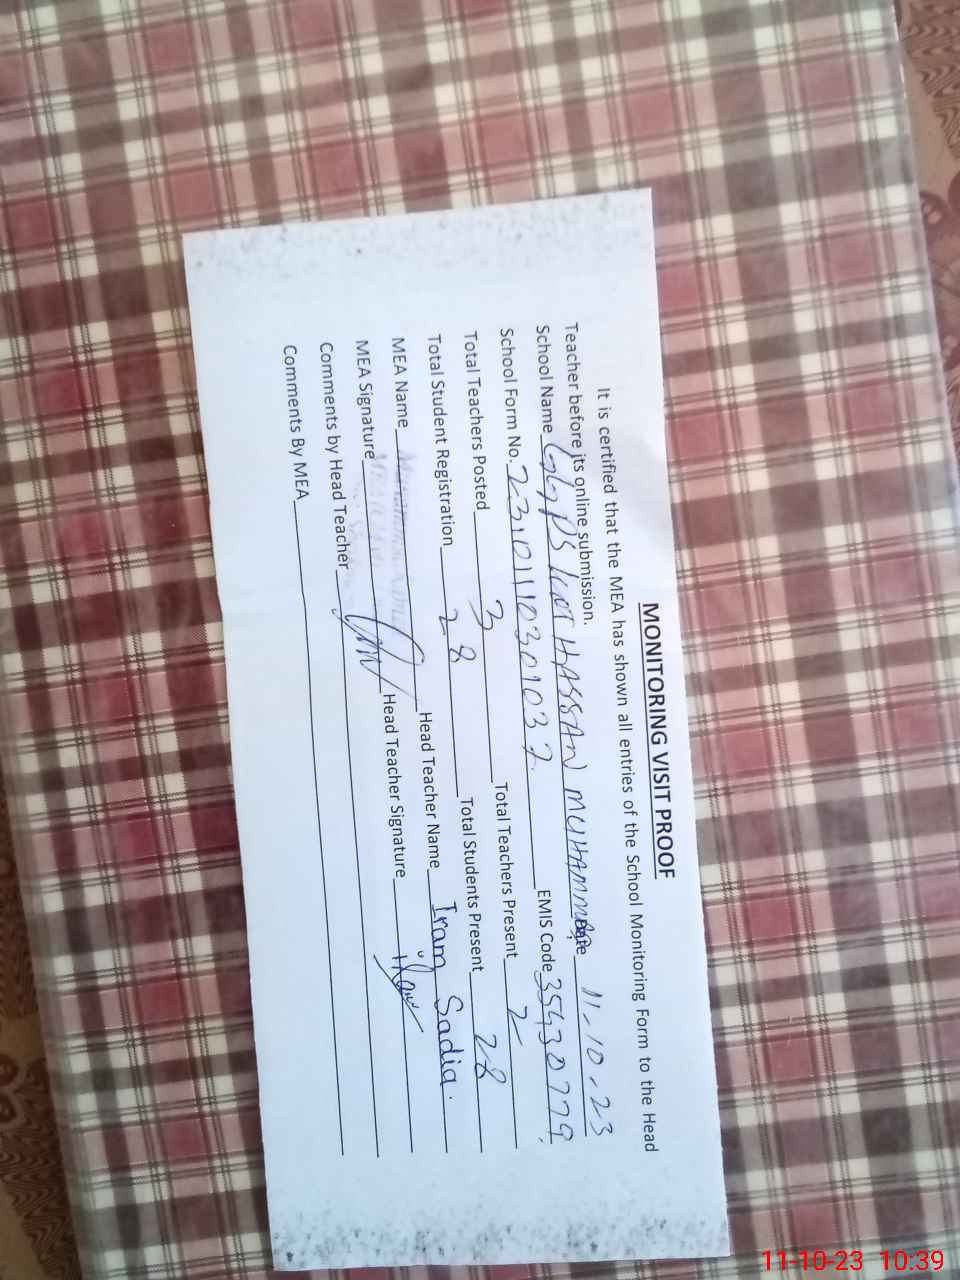 MONITORING VISIT PROOF
It is certified that the MEA has shown all entries of the School Monitoring Form to the Head
Teacher before its online submission.
School Name GGPS KOT HASSAN MUHAMMAD Date 11-10-23
School Form No. 2310111030103 EMIS Code 35430779
Total Teachers Posted 3 Total Teachers Present 2
Total Student Registration 28 Total Students Present 28
MEA Name Head Teacher Name Iram Sadia.
MEA Signature Head Teacher Signature Iram
Comments by Head Teacher
Comments By MEA
11-10-23 10:39